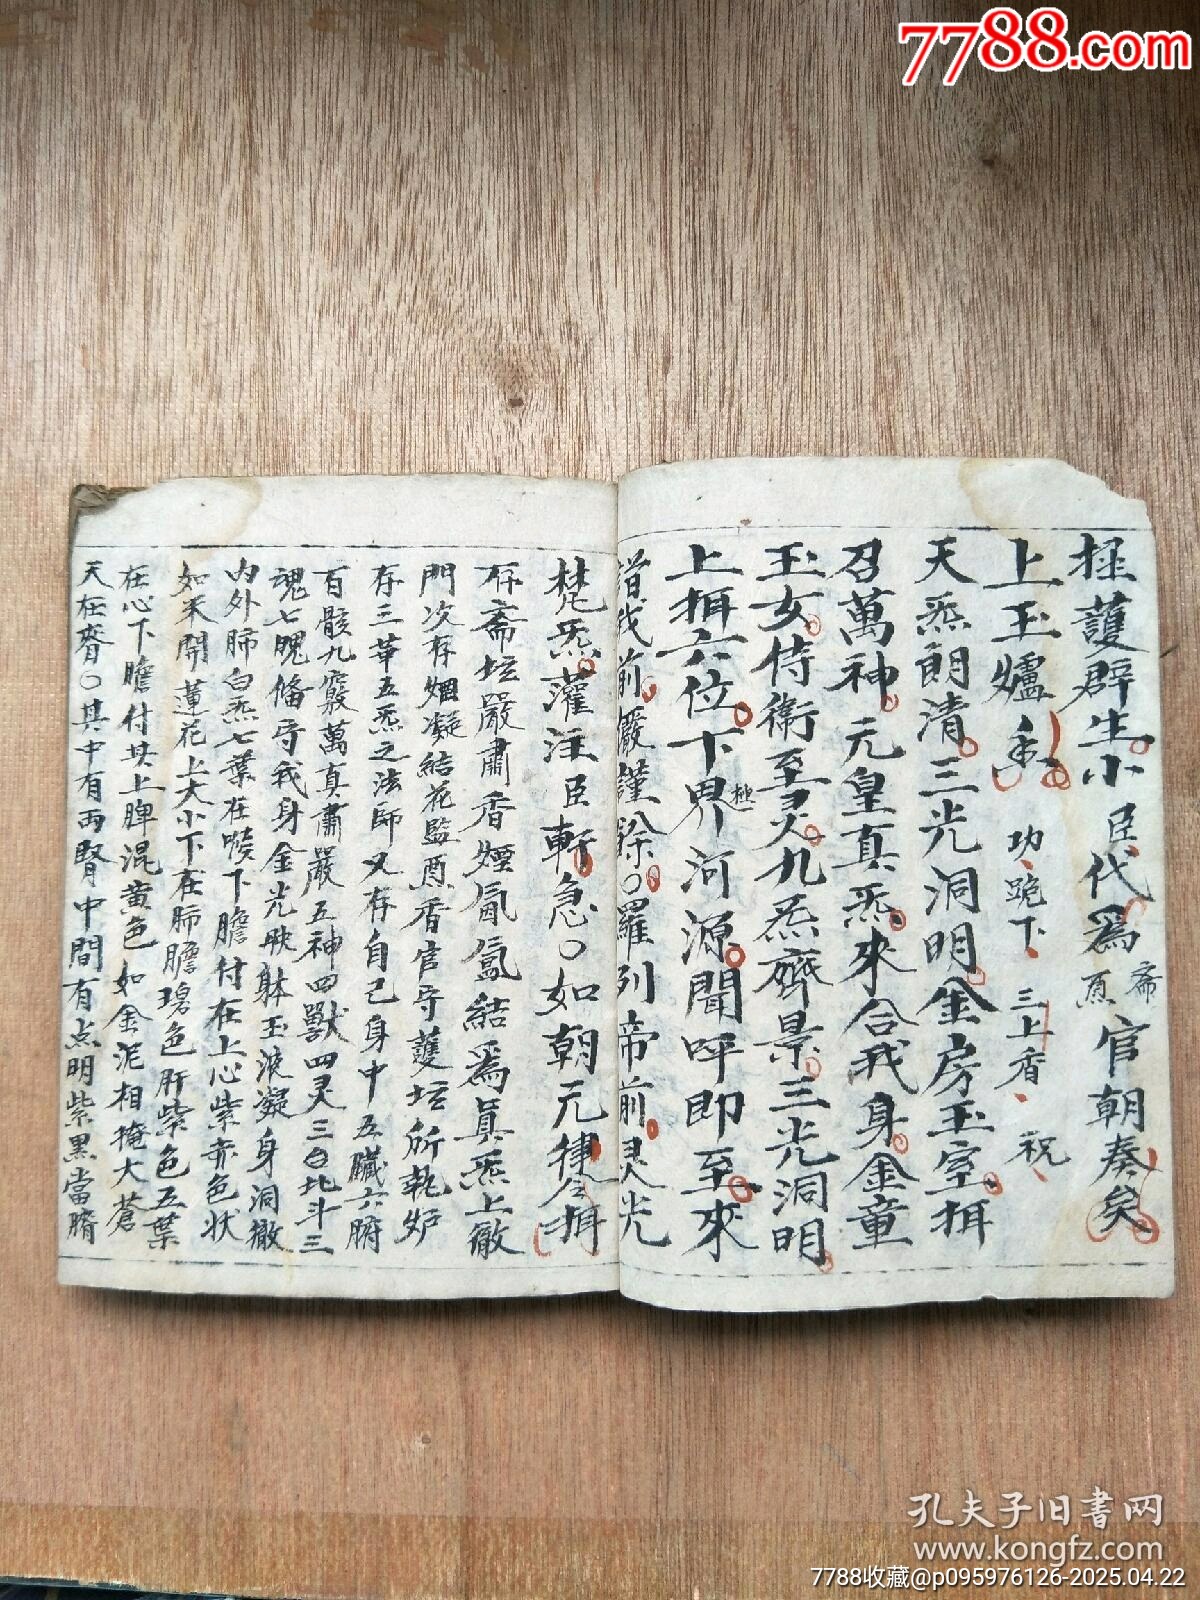 7788.com
拯護群生小臣代為斋㐎官朝奏矣
上玉爐香 功、跪下、三上香、祝、
天炁朗清三光洞明金房玉室拑
召萬神元皇真炁來合我身金童
玉女侍衛至灵九炁齊景三光洞明
上拑六位下極界河源聞呼即至來
我前嚴謹○羅列帝前灵光
梵炁灌注臣軒急○如朝元律令拑
存斋坛嚴肅香煙氤氳結為真炁上徹
門次存烟凝結花監㐎香官守護坛所執炉
存三華五炁之法師又存自己身中五臟六腑
百骸九竅萬真肅嚴五神四獸四灵三台北斗三
魂七魄俻守我身金光映躰玉液凝身洞徹
内外肺白炁七葉在喉下膽付在上心紫赤色状
如未開蓮花上大小下在肺膽碧色肝紫色五葉
在心下膽付其上脾混黄色如金泥相掩大蒼
天在脊○其中有両腎中間有点明紫黒當臍
孔夫子旧书网
www.kongfz.com
7788收藏@p095976126-2025.04.22